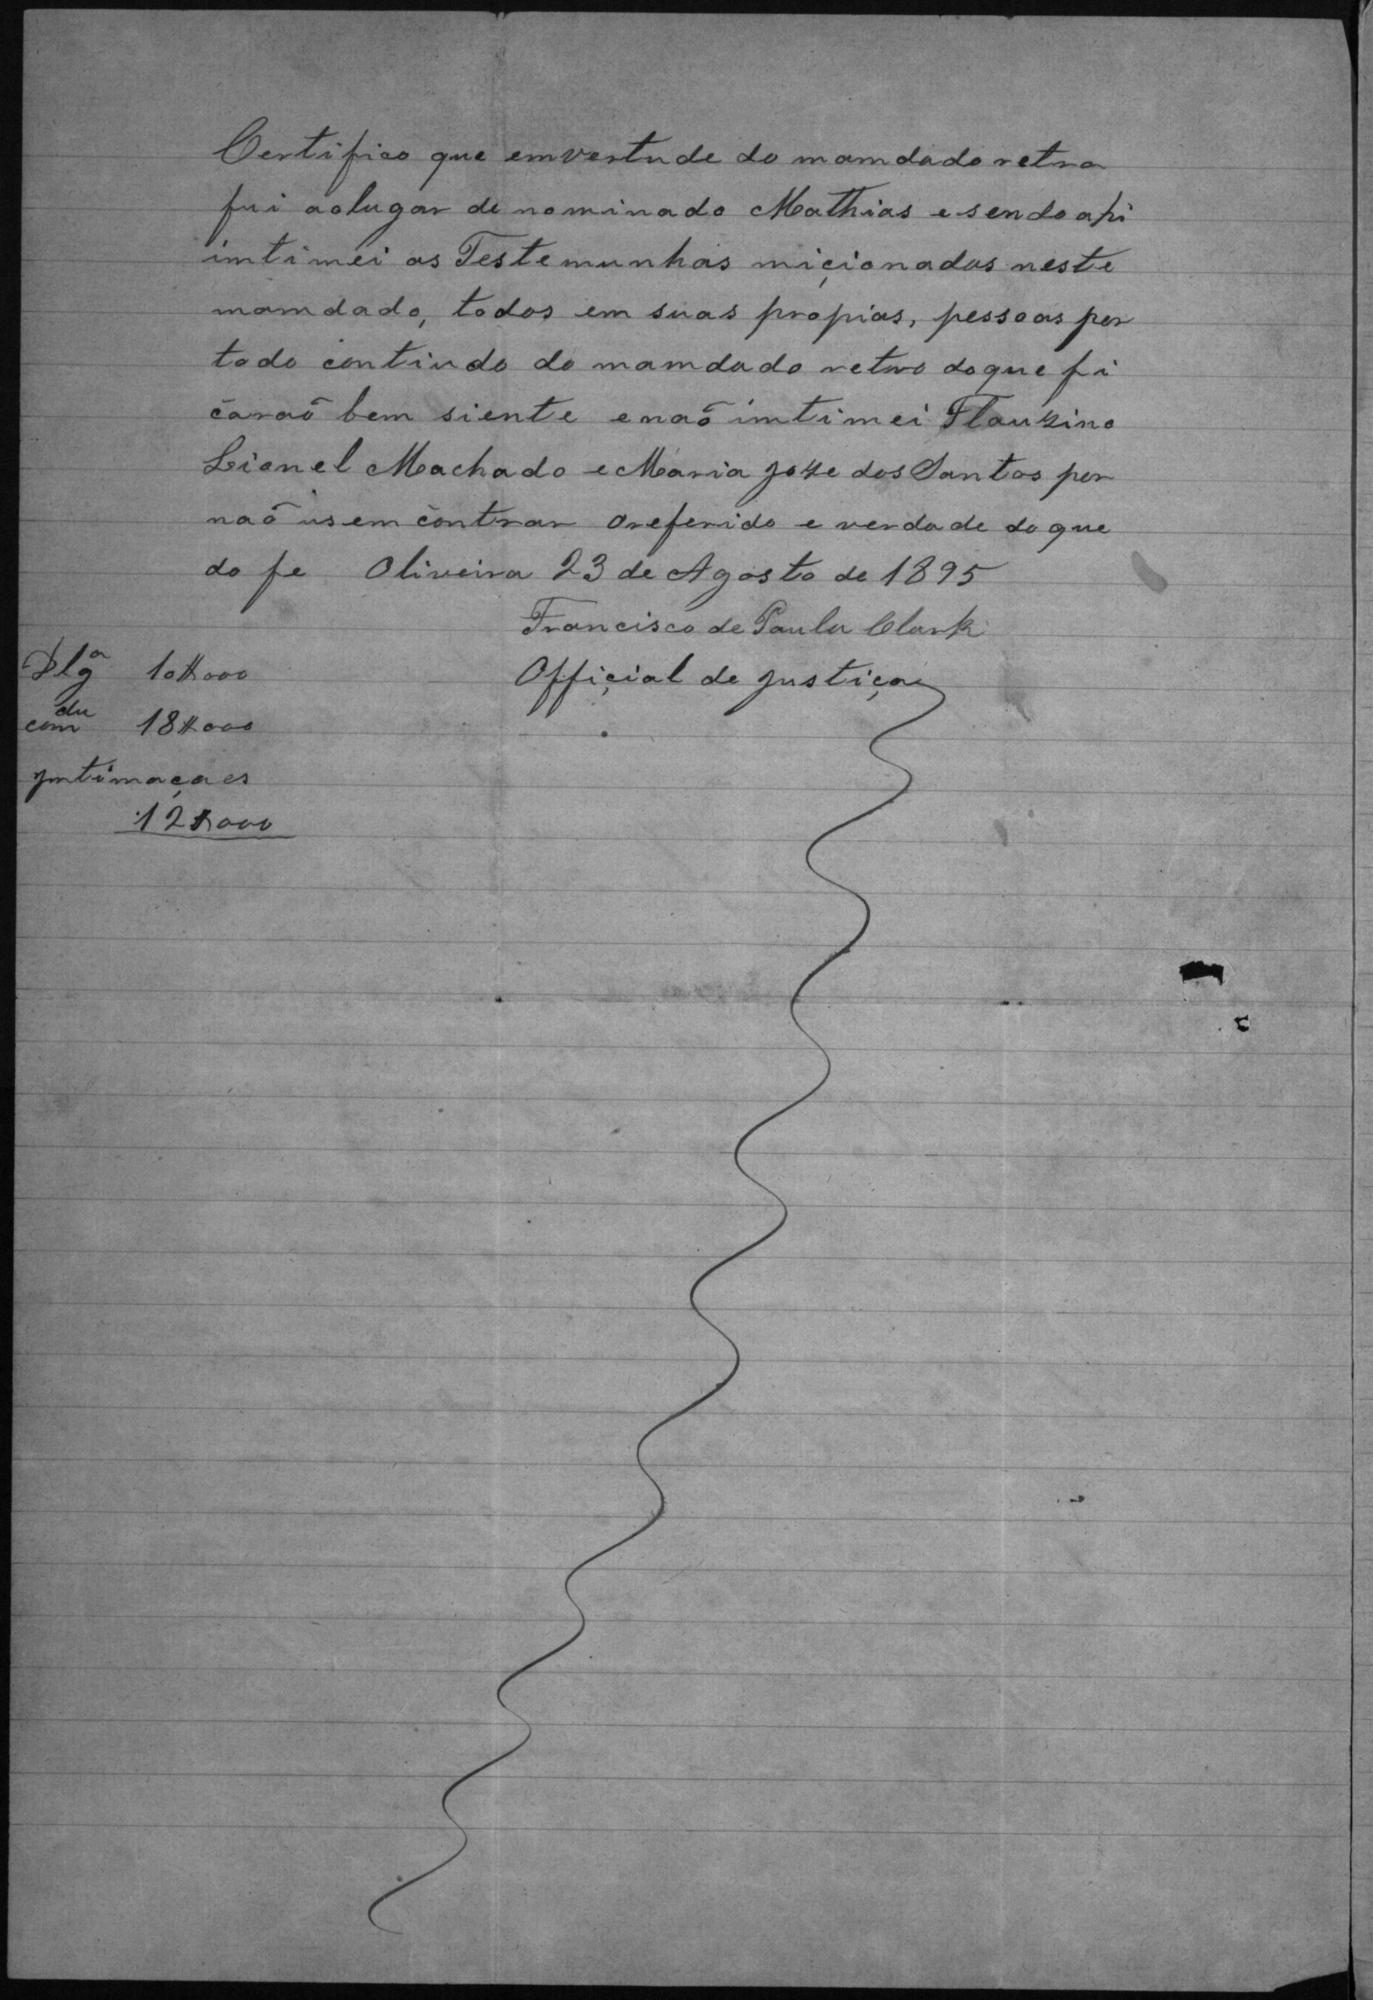 Certifico que em vertude do mamdado retro
fui ao lugar denominado Mathias e sendo ahi
imtimei as Testemunhas miçionadas neste
mamdado, todos em suas propias, pessoas por
todo contiudo do mamdado retro do que fi
caraõ bem siente e naõ imtimei Flauzino
Lionel Machado e Maria Joze dos Santos por
naõ us emcontrar o referido e verdade do que
do fe Oliveira 23 de Agosto de 1895
Francisco de Paula Clark
Offiçial de Justiça
Dlgª 10$000
com du 18$000
Imtimaçaes
12$000